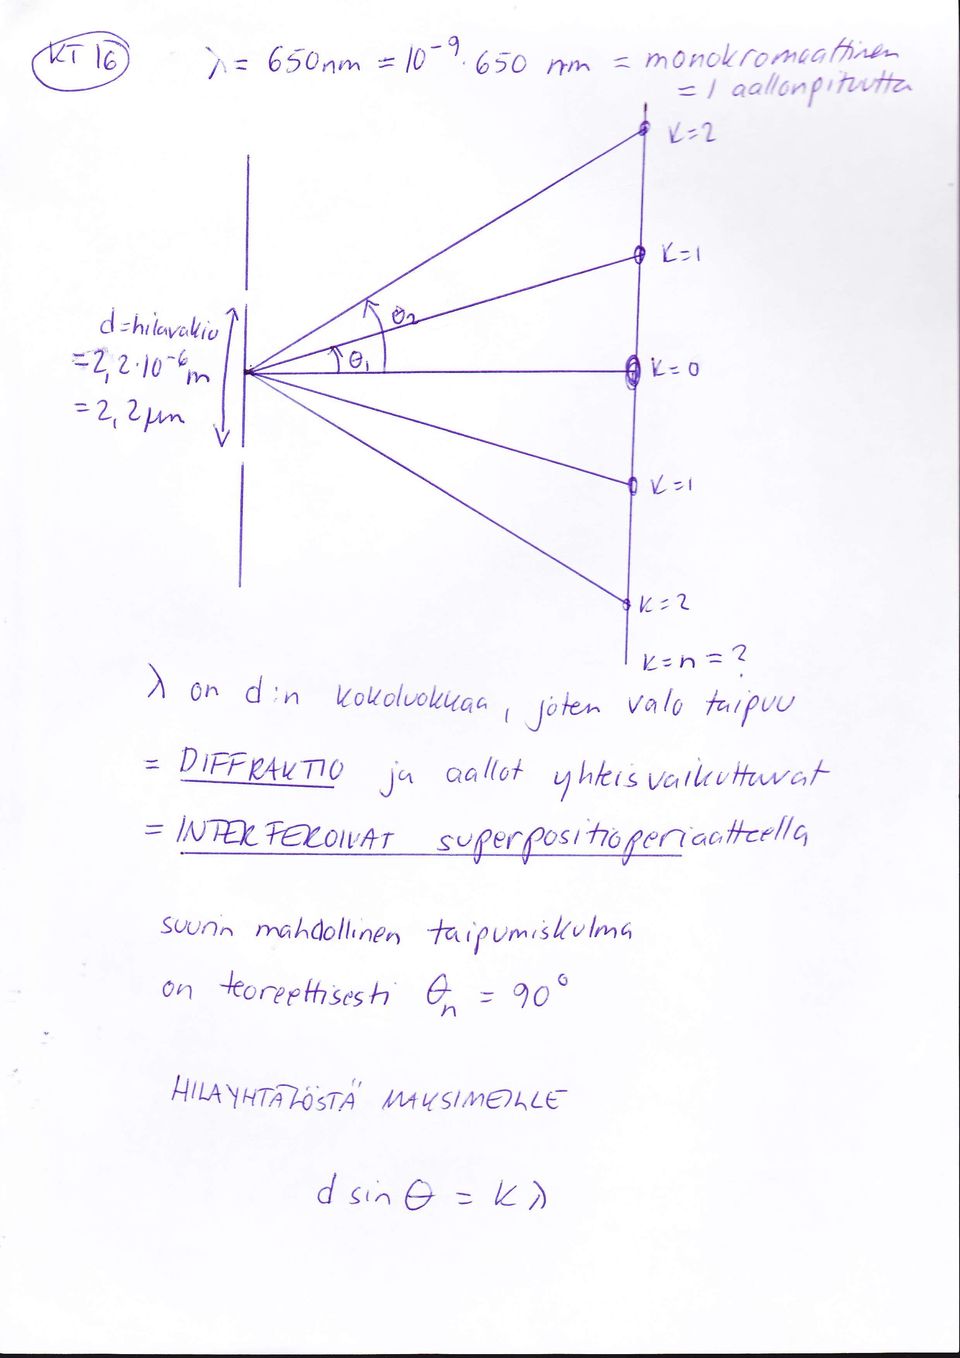 KT 16
λ = 650nm = 10⁻⁹·650 nm = monokromaattinen
= 1 aallonpituutta
K=2
K=1
θ₂
θ₁
d=hilavakio
=2,2·10⁻⁶m
=2,2μm
K=0
K=1
K=2
K=n=?
λ on d:n kokoluokkaa, joten valo taipuu
= DIFFRAKTIO ja aallot yhteisvaikuttavat
= INTERFEROIVAT superpositioperiaatteella
suurin mahdollinen taipumiskulma
on teoreettisesti θₙ = 90°
HILAYHTÄLÖSTÄ MAKSIMEILLE
d sin θ = K λ